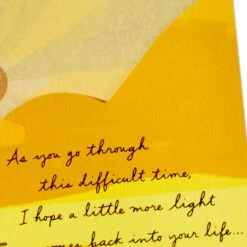 As you go through
this difficult time,
I hope a little more light
comes back into your life...